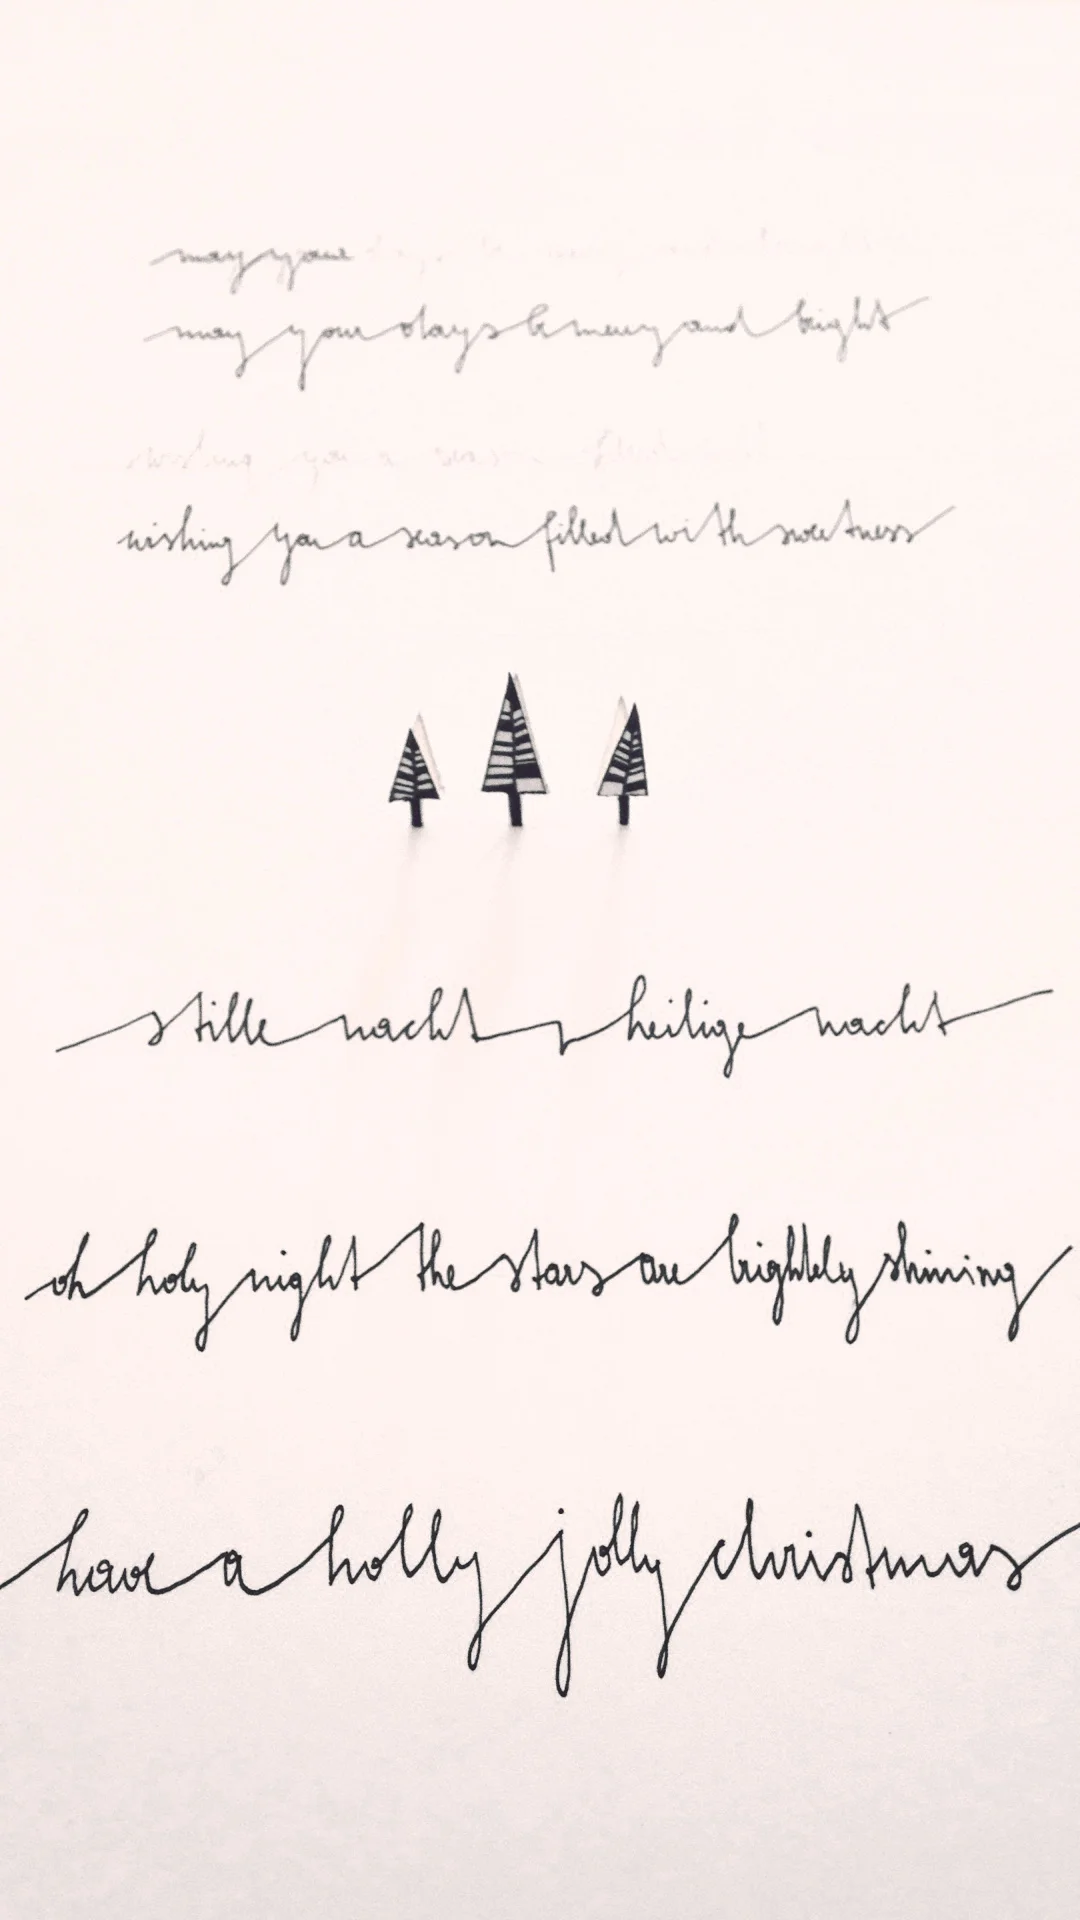 may your
may your days be merry and bright
wishing you a season filled
wishing you a season filled with sweetness
stille nacht heilige nacht
oh holy night the stars are brightly shining
have a holly jolly christmas